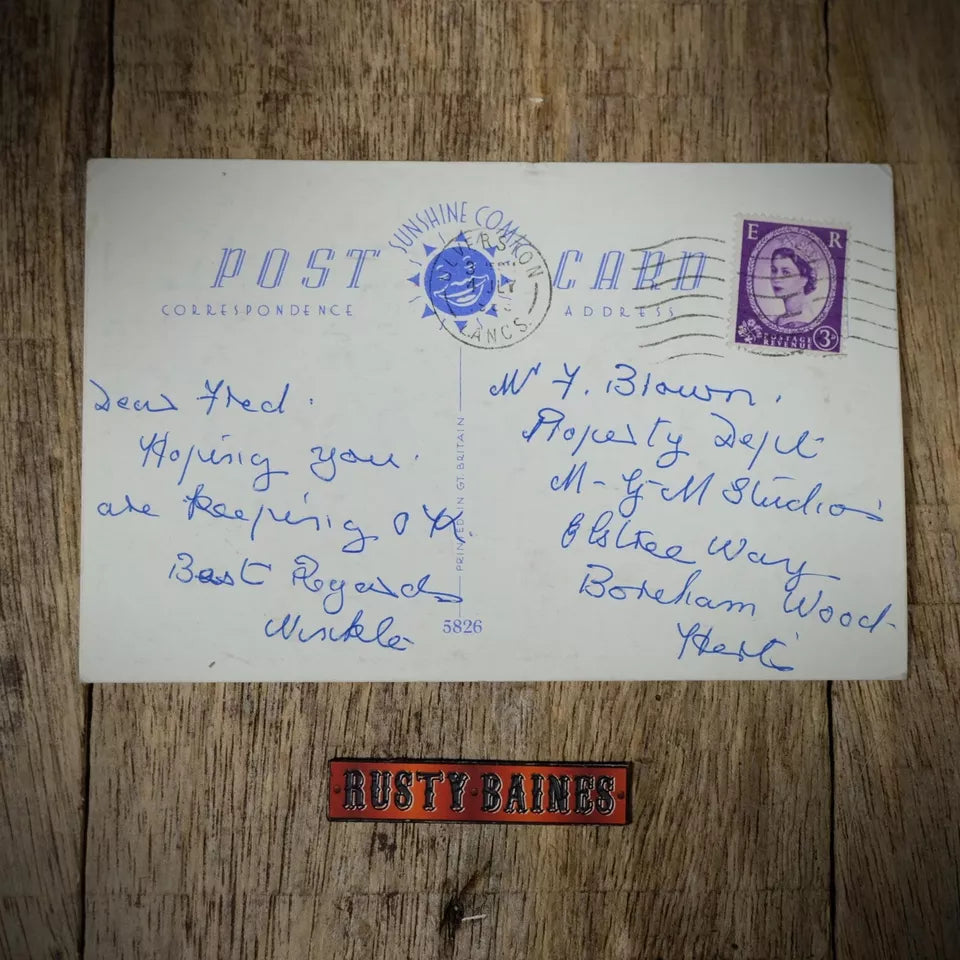 SUNSHINE COMIKON
POST CARD
CORRESPONDENCE
ADDRESS
ULVERSTON
LANCS.
E R
POSTAGE
REVENUE
3D
Dear Fred.
Hoping you.
are keeping OK.
Best Regards
Winkle
Mr F. Brown.
Property Dept
M-G-M Studios
Elstree Way
Boreham Wood
Herts
PRINTED IN GT. BRITAIN
5826
RUSTY BAINES